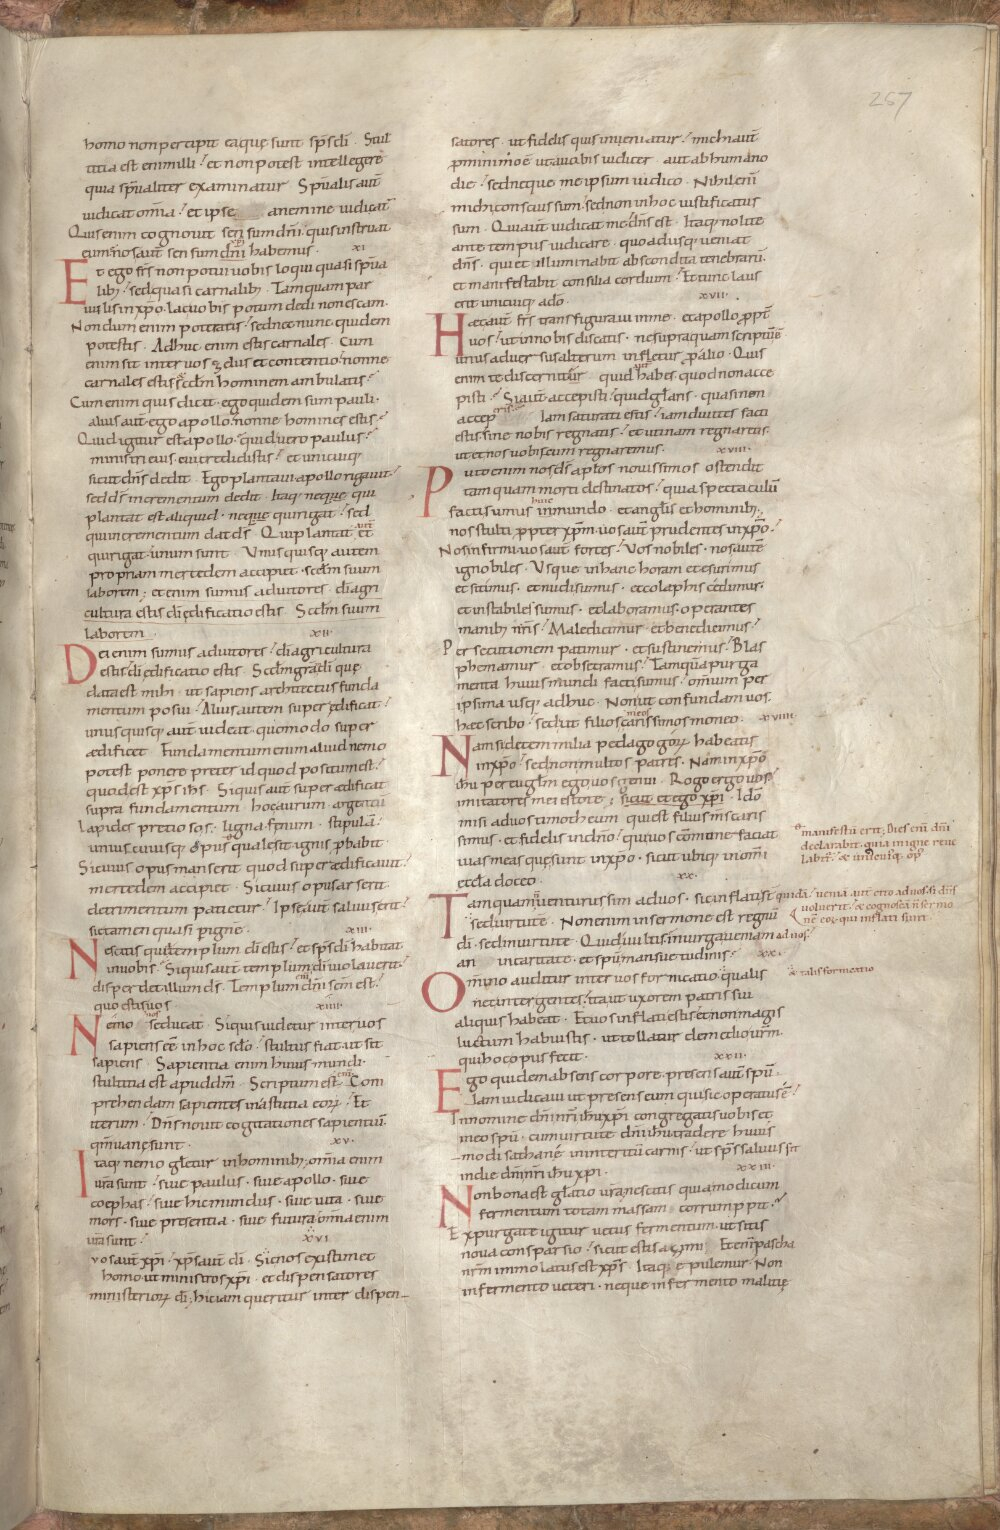 257
homo non percipit ea quę sunt sp̄s dī . Stul
titia est enim illi ? et non potest intellegere
quia sp̄ualiter examinatur Sp̄ualis aut̄
iudicat om̄ia ? et ipse a nemine iudicat̄
Quis enim cognouit sensum dn̄i . quis instruat
eum ? nos aut̄ sensum dn̄i xp̄i habemus . xi
Et ego fr̄s non potui uobis loqui quasi sp̄ua
lib; ? sed quasi carnalib; Tamquam par
uulis in xp̄o . lac uobis potum dedi non escam .
Nondum enim poteratis ? sed nec nunc quidem
potestis . Adhuc enim estis carnales . Cum
enim sit inter uos zelus et contentio ? nonne
carnales estis ? & scdm̄ hominem ambulatis ?
Cum enim quis dicit . ego quidem sum pauli .
alius aut̄ . ego apollo . nonne homines estis ?
Quid igitur est apollo . quid uero paulus ?
ministri eius . cui credidistis ? et unicuiq;
sicut dn̄s dedit . Ego plantaui . apollo rigauit ?
sed ds̄ incrementum dedit . Itaq; neque qui
plantat est aliquid . neque qui rigat ? sed
qui incrementum dat ds̄ . Qui plantat aut̄ et
qui rigat . unum sunt . Vnusquisq; autem
propriam mercedem accipiet . scdm̄ suum
laborem ; et enim sumus adiutores . dī agri
cultura estis dī ędificatio estis Scdm̄ suum
laborem . xii
Dei enim sumus adiutores ? dī agricultura
estis ? dī ędificatio estis . Scdm̄ gratia dī quę
data est mihi . ut sapiens architectus funda
mentum posui . Alius autem super ędificat ?
unusquisq; aut̄ uideat . quomodo super
ædificet Fundamentum enim aliud nemo
potest ponere preter id quod positum est ?
quod est xp̄s ih̄s . Si quis aut̄ super ædificat
supra fundamentum hoc aurum . argentū
lapides pretiosos . ligna . fęnum . stipulā ?
uniuscuiusq; opus quale sit ignis ꝓbabit
Si cuius opus manserit quod super ædificauit ?
mercedem accipiet . Si cuius opus arserit
detrimentum patietur ? Ipse aut̄ saluus erit ?
sic tamen quasi ꝑ igne . xiii
Nescitis quia templum dī estis ? et sp̄s dī habitat
in uobis . Si quis aut̄ templum dī uiolauerit ?
disperdet illum ds̄ . Templum enim dī scm̄ est .
quod estis uos . xiiii
Nemo uos seducat . Si quis uidetur inter uos
sapiens eē in hoc sc̄lo . stultus fiat . ut sit
sapiens . Sapientia enim huius mundi .
stultitia est apud dm̄ . Scriptum est enim Com
prehendam sapientes in astutia eorꝝ ? Et
iterum . Dn̄s nouit cogitationes sapientiū .
qm̄ uanę sunt . xv .
Itaq; nemo glet̄ur in hominib; . om̄ia enim
ur̄a sunt ? siue paulus . siue apollo . siue
coephas ? siue hic mundus . siue uita . siue
mors . siue presentia . siue futura om̄ia enim
ur̄a sunt ? xvi
uos aut̄ xp̄i ? xp̄s aut̄ dī . Sic nos existimet
homo . ut ministros xp̄i . et dispensatores
ministeriorꝝ dī ; hic iam queritur inter dispen
satores . ut fidelis quis inueniatur ? michi aut̄
ꝓ minimo ē ut a uobis iudicer aut ab humano
die ? sed neque me ipsum iudico . Nihil enī
michi conscius sum . sed non in hoc iustificatus
sum . Qui aut̄ iudicat me . dn̄s est . Itaq; nolite
ante tempus iudicare . quo adusq; ueniat
dn̄s . qui et illuminabit abscondita tenebrarū .
et manifestabit consilia cordium ? Et tunc laus
erit unicuiq; a dō . xvii .
Hæc aut̄ fr̄s transfiguraui in me . et apollo ꝓpt̄
uos ? ut in nobis discatis . ne supra quam scriptū ē
unus aduersus alterum infletur ꝓ alio . Quis
enim te discernit ? quid aut̄ habes . quod non acce
pisti ? Si aut̄ accepisti ? quid gl̄aris . quasi non
acceperis . Iam saturati estis ? iam diuites facti
estis . sine nobis regnatis ? et utinam regnaretis .
ut et nos uobiscum regnaremus . xviii .
Puto enim nos ds̄ apl̄os nouissimos ostendit
tamquam morti destinatos ? quia spectaculū
facti sumus huic mundo . et angl̄is et hominib; .
nos stulti ꝓpter xp̄m . uos aut̄ prudentes in xp̄o ?
Nos infirmi . uos aut̄ fortes ? Vos nobiles . nos aut̄
ignobiles . Vsque in hanc horam et esurimus
et sitimus . et nudi sumus . et colaphis cedimur .
et instabiles sumus . et laboramus . operantes
manib; nr̄is ? Maledicimur . et benedicimus ?
Persecutionem patimur . et sustinemus ? Blas
phemamur et obsecramus ? Tamquā purga
menta huius mundi facti sumus ? omnium per
ipsima usq; adhuc . Non ut confundam uos
hæc scribo ? sed ut filios meos carissimos moneo . xviiii
Nam si decem milia pedagogorꝝ habeatis
in xp̄o ? sed non multos patres . Nam in xp̄o
ih̄u per euglm̄ ego uos genui . Rogo ergo uos ?
imitatores mei estote ; sicut et ego xp̄i . Ideo
misi ad uos timotheum qui est filius m̄s caris
simus . et fidelis in dn̄o ? qui uos cōmone faciat
uias meas quę sunt in xp̄o . sicut ubiq; in om̄i
ęcc̄la doceo . xx .
Tamquam n̄ uenturus sim ad uos . sic inflati st̄
sed uirtute . Non enim in sermone est regnū
dī . sed in uirtute . Quid uultis in uirga ueniam ad uos ?
an in caritate . et spū mansuetudinis ? xxi .
Omnino auditur inter uos fornicatio . qualis
nec inter gentes ? ita ut uxorem patris sui
aliquis habeat . Et uos inflati estis et non magis
luctum habuistis . ut tollatur de medio ur̄m .
qui hoc opus fecit . xxii .
Ego quidem absens corpore . presens aut̄ spū .
Iam iudicaui ut presens eum qui sic operatus ē ?
In nomine dn̄i nr̄i ih̄u xp̄i congregatis uobis et
meo spū . cum uirtute dn̄i ih̄u tradere huius
modi sathanę in interitū carnis . ut sp̄s saluus sit
in die dn̄i nr̄i ih̄u xp̄i . xxiii .
Non bona est gl̄atio ur̄a . nescitis quia modicum
fermentum totam massam corrumpit .
Expurgate igitur uetus fermentum . ut sitis
noua consparsio ? sicut estis azimi Et enī pascha
nr̄m immolatus est xp̄s Itaq; ępulemur . Non
in fermento ueteri . neque in fermento malitię
manifestū erit ; Dies enī dn̄i
declarabit . quia in igne reue
labit̄ . & uniuscuiusq; op̄
quidā ? ueniā aut̄ cito ad uos . si dn̄s
uoluerit . & cognoscā n̄ sermo
nē eoꝝ . qui inflati sunt .
& talis fornicatio